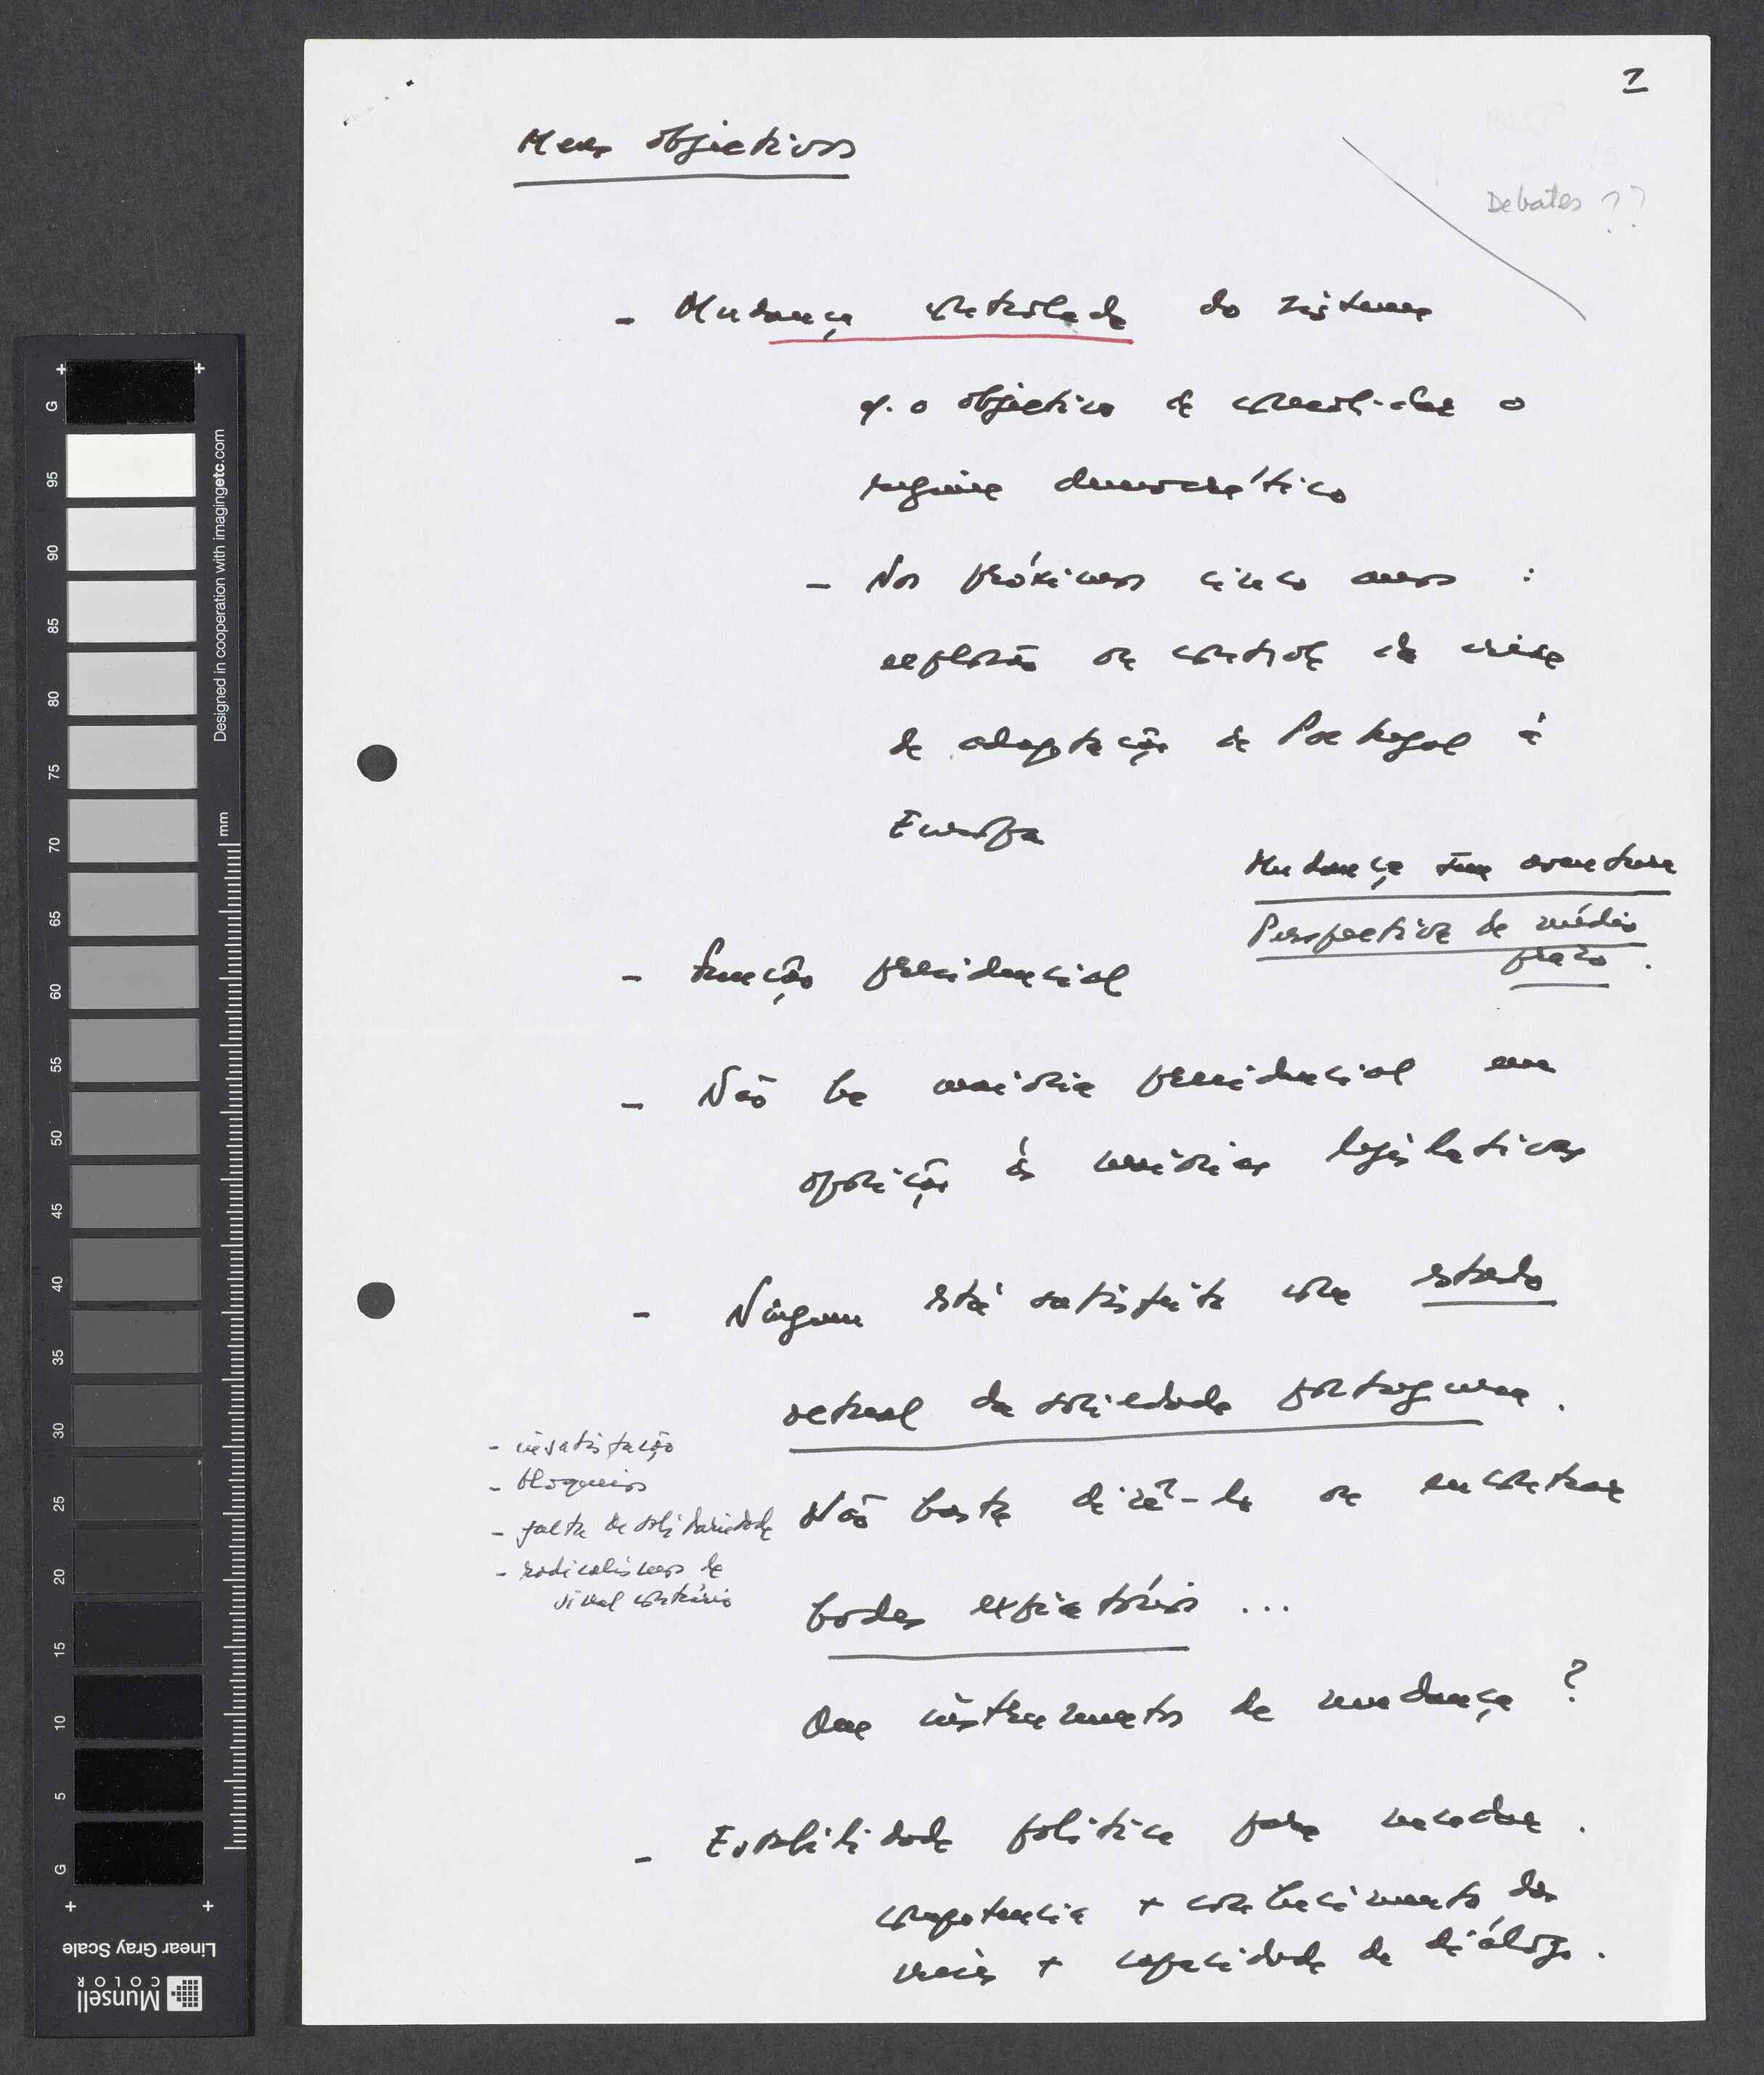 1
Meus objectivos
Debates ??
- Mudança controlada do sistema
c/ o objectivo de consolidar o
regime democrático
- Nos próximos cinco anos :
explosão ou controle da crise
de adaptação de Portugal à
Europa
Mudança sem aventura
Perspectiva de médio
prazo.
- função presidencial
- Não há maioria presidencial em
oposição às maiorias legislativas
- Ninguem está satisfeito com estado
actual da sociedade portuguesa.
- insatisfação
- bloqueios
- falta de solidariedade
- radicalismos de
sinal contrário
Não basta dizê-lo ou encontrar
bodes expiatórios ...
Que instrumentos de mudança ?
- Estabilidade politica para mudar.
competencia + conhecimento dos
meios + capacidade de diálogo.
G
95
90
85
80
75
70
65
60
55
50
45
40
35
30
25
20
15
10
5
G
mm
Designed in cooperation with imagingetc.com
Linear Gray Scale
Munsell
COLOR